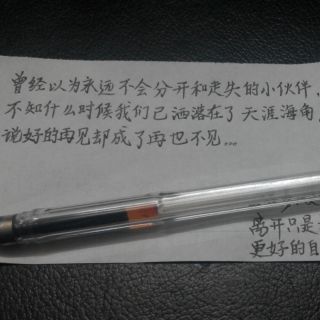 曾经以为永远不会分开和走失的小伙伴,
不知什么时候我们已洒落在了天涯海角,
说好的再见却成了再也不见...
离开只是
更好的自